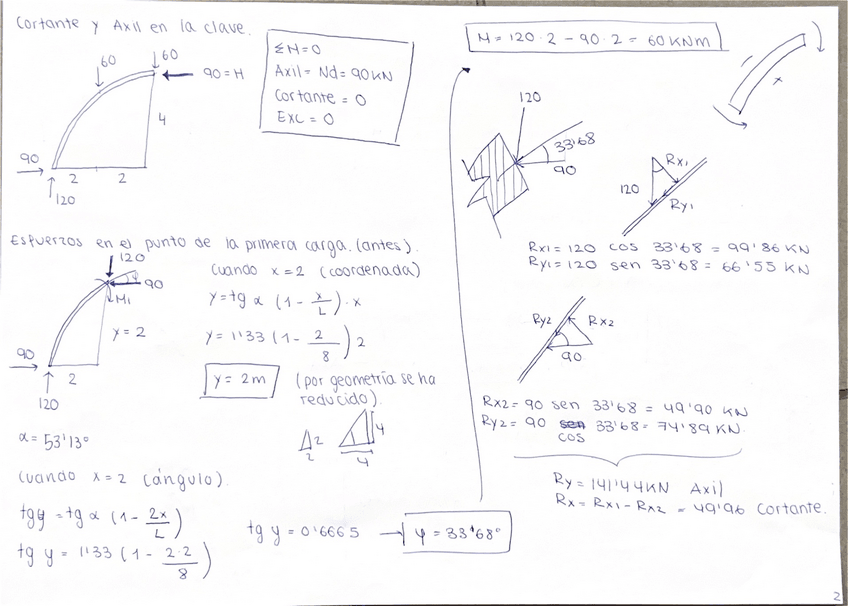 Cortante y Axil en la clave.
60
60
90=H
4
90
2
2
120
ΣM=0
Axil = Nd= 90KN
Cortante = 0
Exc = 0
Esfuerzos en el punto de la primera carga. (antes).
120
φ
90
M1
y=2
90
2
120
α = 53'13°
cuando x=2 (coordenada)
y = tg α (1 - x/L) · x
y = 1'33 (1 - 2/8) 2
y = 2m
(por geometría se ha
reducido).
2
2
4
4
cuando x=2 (ángulo).
tgy = tg α (1 - 2x/L)
tg y = 1'33 (1 - 2·2/8)
tg y = 0'6665 → φ = 33'68°
M = 120·2 - 90·2 = 60 KNm
-
+
120
33'68
90
Rx1
120
Ry1
Rx1 = 120 cos 33'68 = 99'86 KN
Ry1 = 120 sen 33'68 = 66'55 KN
Ry2
Rx2
90
Rx2 = 90 sen 33'68 = 49'90 KN
Ry2 = 90 cos 33'68 = 74'89 KN.
Ry = 141'44KN Axil
Rx = Rx1 - Rx2 = 49'96 Cortante.
2